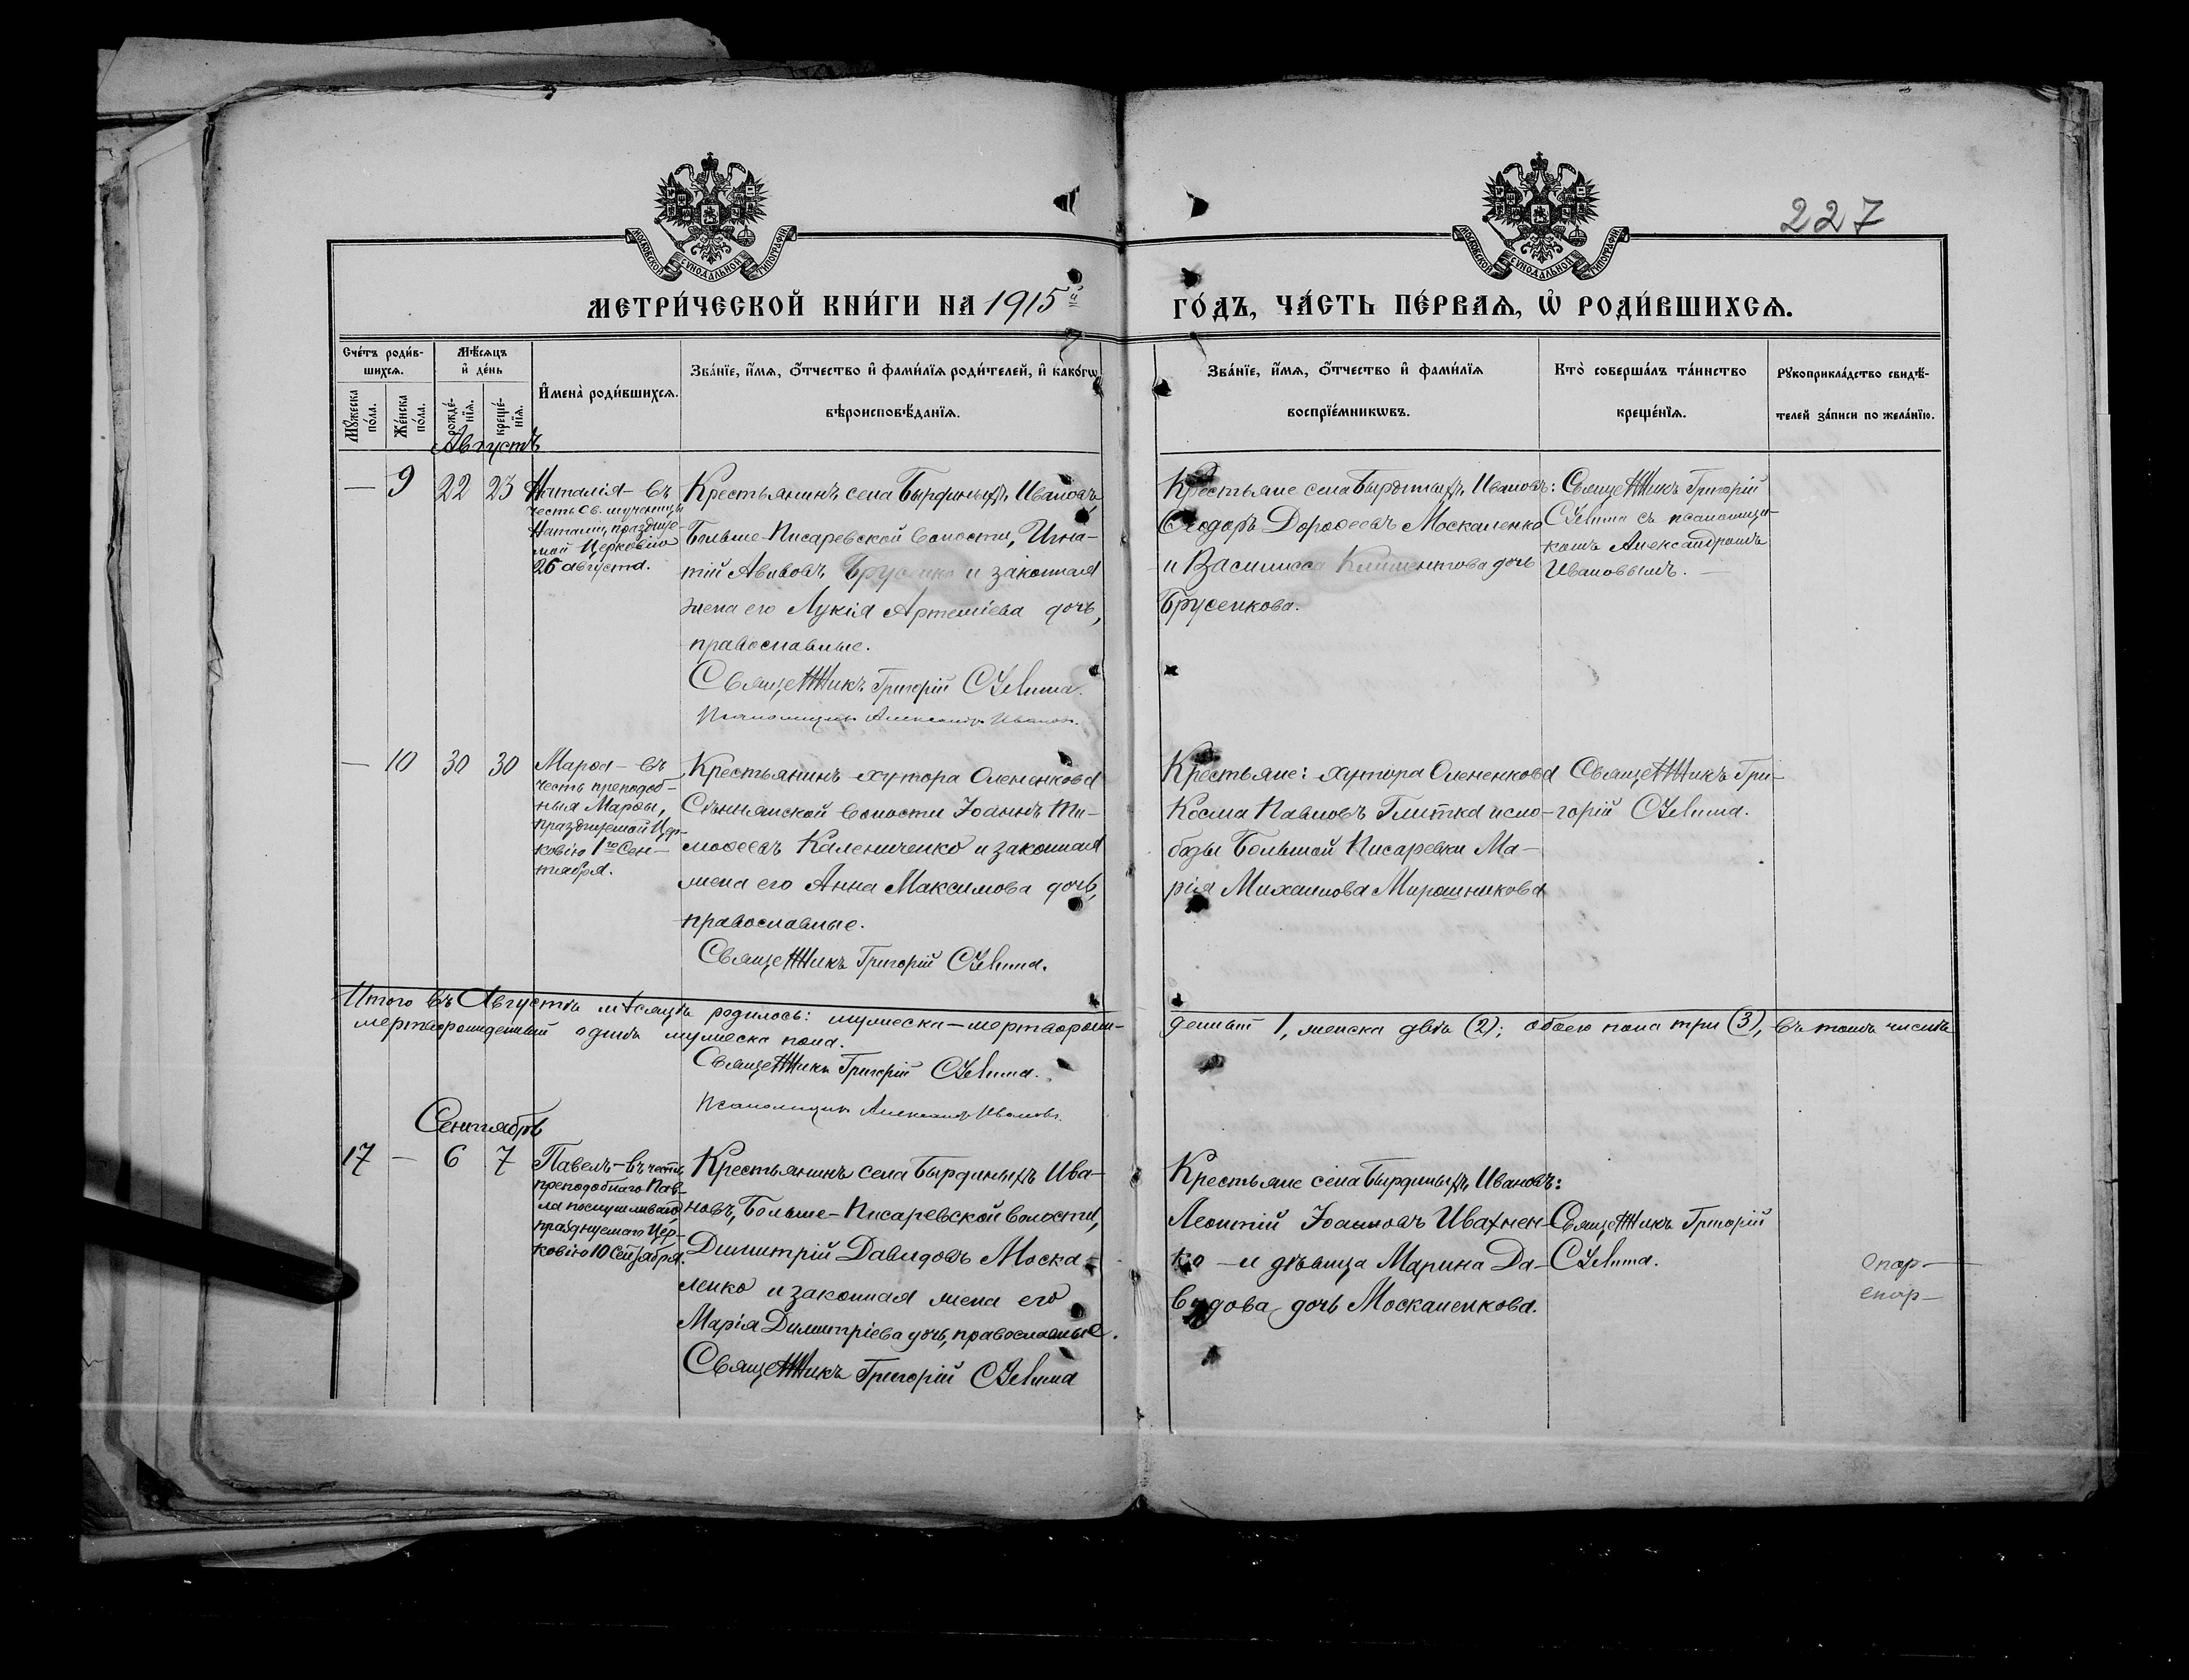 227
МОСКОВСКОЙ СѴНОДАЛЬНОЙ ТИПОГРАФІИ
МОСКОВСКОЙ СѴНОДАЛЬНОЙ ТИПОГРАФІИ
МЕТРИ́ЧЕСКОЙ КНИ́ГИ НА 1915й
ГО́ДЪ, ЧА́СТЬ ПЕ́РВАЯ, Ѡ҆ РОДИ́ВШИХСЯ.
Сче́тъ роди́в-
шихся.
Мѣ́сяцъ
и҆ де́нь
Мꙋ́жеска
по́ла.
Же́нска
по́ла.
рожде́-
нїя.
креще́-
нїя.
И҆мена̀ роди́вшихся.
Зва́нїе, и҆́мя, ѻ҆́тчество и҆ фами́лїя роди́телей, и҆ како́гѡ
вѣроисповѣ́данїя.
Зва́нїе, и҆́мя, ѻ҆́тчество и҆ фами́лїя
воспрїе́мникѡвъ.
Кто̀ соверша́лъ та́инство
креще́нїя.
Рꙋкоприкла́дство свидѣ́-
телей за́писи по жела́нїю.
Августъ
— 9 22 23
Наталія – въ
честь св. мученицы
Наталіи, празднуе-
мой Церковію
26 августа.
Крестьянинъ села Бырдиныхъ Ивановъ,
Больше-Писаревской волости, Игна-
тій Авивовъ Брусенко и законная
жена его Лукія Артеміева дочь,
православные.
Священникъ Григорій
Псаломщикъ Александръ Ивановъ.
Крестьяне села Бырдиныхъ Ивановъ:
Ѳеодоръ Дороѳеевъ Москаленко
и Василисса Климентова дочь
Брусенкова.
Священникъ Григорій
съ псаломщи-
комъ Александромъ
Ивановымъ. —
— 10 30 30
Марѳа – въ
честь преподоб-
ныя Марѳы,
празднуемой Цер-
ковію 1го Сен-
тября.
Крестьянинъ хутора Олененкова
волости Іоаннъ Ти-
моѳеевъ Калениченко и законная
жена его Анна Максимова дочь,
православные.
Священникъ Григорій
Крестьяне: хутора Олененкова
Косма Павловъ Глитка и сло-
боды Большой Писаревки Ма-
рія Михаилова Мирошникова
Священникъ Гри-
горій
Итого въ Августѣ мѣсяцѣ родилось: мужеска – мертворож-
денный 1, женска двѣ (2); обоего пола три (3), въ томъ числѣ
мертворожденный одинъ мужеска пола.
Священникъ Григорій
Псаломщикъ Александръ Ивановъ.
Сентябрь
17 — 6 7
Павелъ – въ честь
преподобнаго Пав-
ла послушливаго,
празднуемаго Цер-
ковію 10 Сентября.
Крестьянинъ села Бырдиныхъ Ива-
новъ, Больше-Писаревской волости,
Димитрій Давидовъ Моска-
ленко и законная жена его
Марія Димитріева дочь, православные.
Священникъ Григорій
Крестьяне села Бырдиныхъ Ивановъ:
Леонтій Іоанновъ Ивахнен-
ко – и дѣвица Марина Да-
видова дочь Москаленкова.
Священникъ Григорій